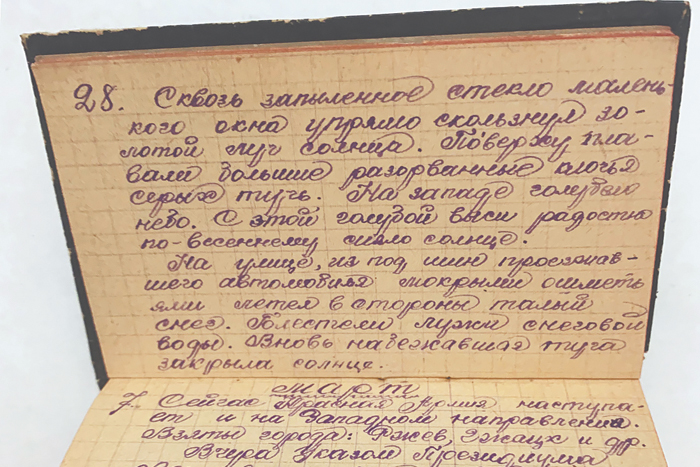 28. Сквозь запыленное стекло малень-
кого окна упрямо скользнул зо-
лотой луч солнца. Поверху пла-
вали большие разорванные клочья
серых тучь. На западе голубело
небо. С этой голубой выси радостно
по-весеннему сияло солнце.
На улице, из под шин проезжав-
шего автомобиля мокрыми ошметь
ями летел в стороны талый
снег. Блестели лужи снеговой
воды. Вновь набежавшая туча
закрыла солнце.
Март
7. Сейчас Красная Армия наступа-
ет и на Западном направлении.
Взяты города: Ржев, Гжатск и др.
Вчера Указом Президиума